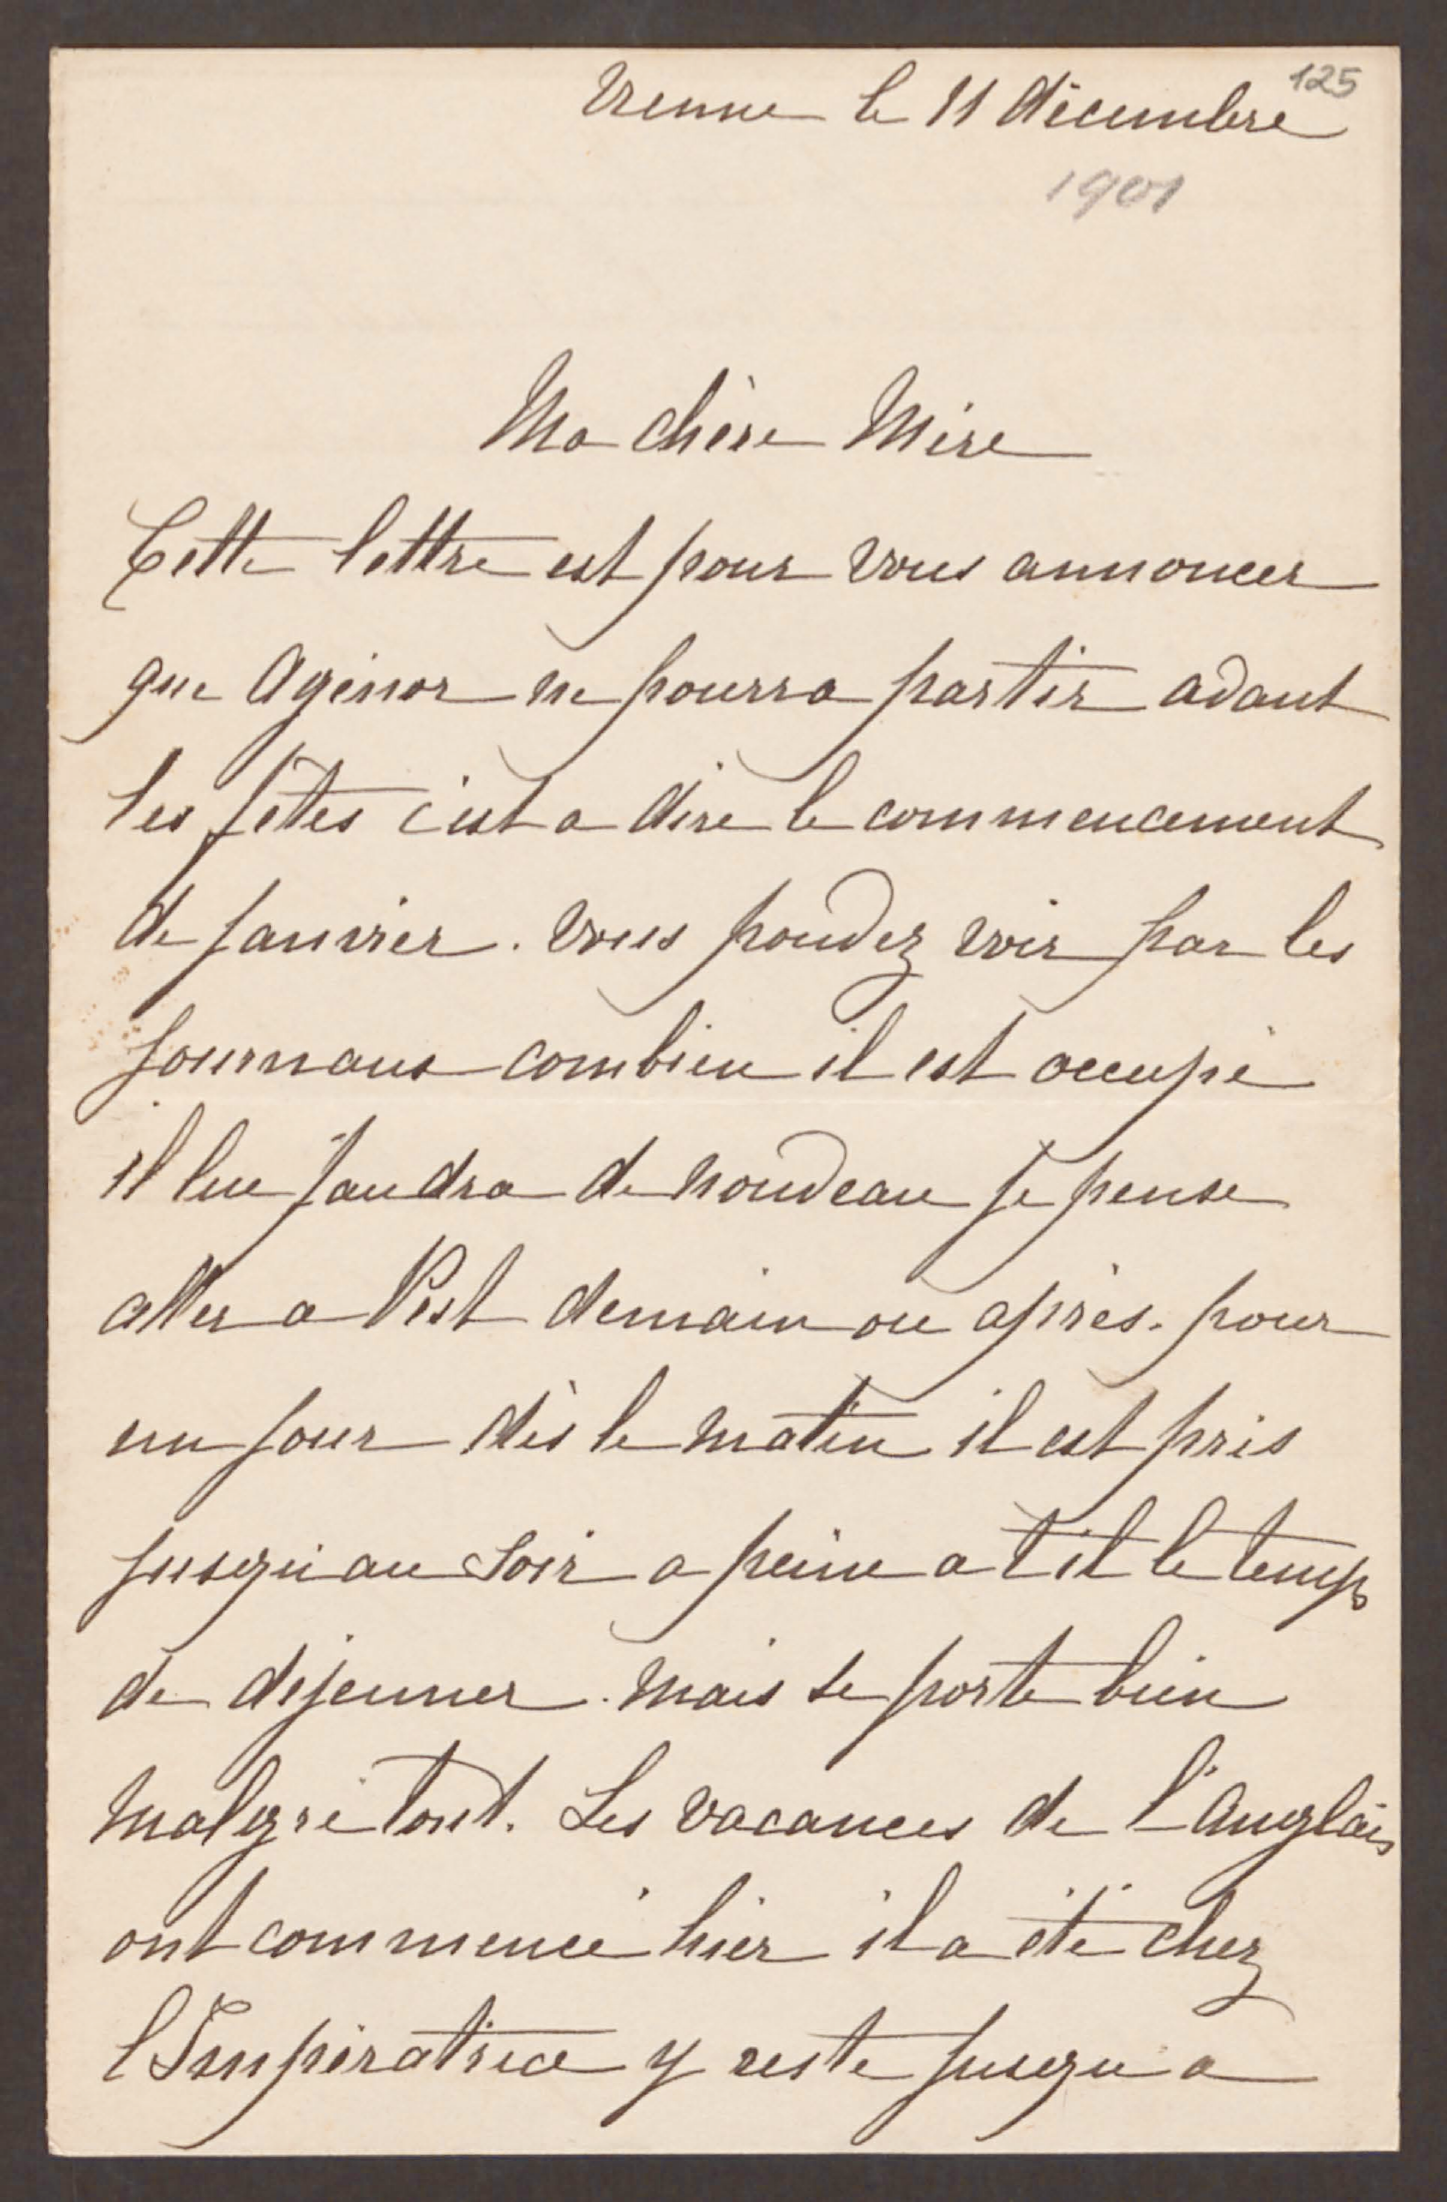 125
Vienne le 11 décembre
1901
Ma chère Mère
Cette lettre est pour vous annoncer
que Agénor ne pourra partir avant
les fêtes c'est a dire le commencement
de janvier. Vous pouvez voir par les
journaus combien il est occupé
il lui faudra de nouveau je pense
aller a Pest demain ou après. pour
un jour dès le matin il est pris
jusqu'au soir a peine a t il le temps
de déjeuner. Mais se porte bien
malgré tout. Les vacances de l'Anglais
ont commencé hier il a été chez
l Impératrice y reste jusqu a